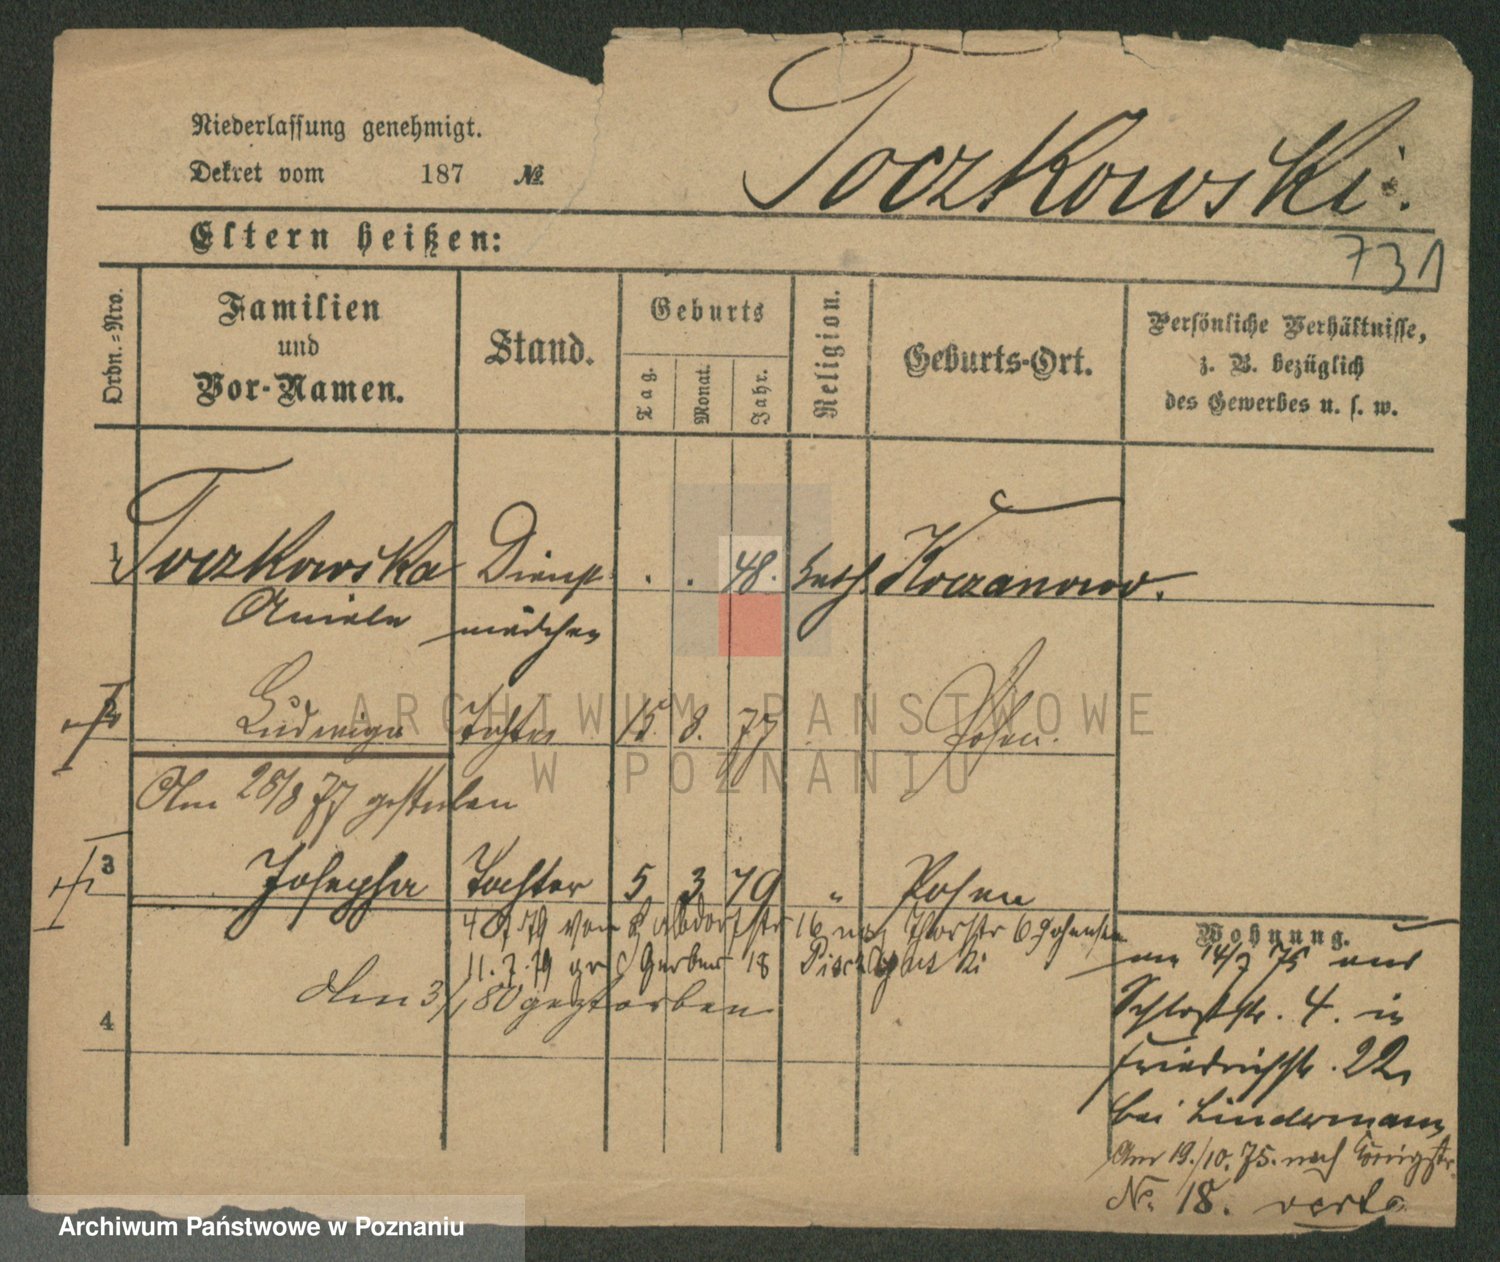 Niederlassung genehmigt.
Dekret vom 187 №
Toczkowski.
731
Eltern heißen:
Ordn.-Nro.
Familien
und
Vor-Namen.
Stand.
Geburts
Tag.
Monat.
Jahr.
Religion.
Geburts-Ort.
Persönliche Verhältnisse,
z. B. bezüglich
des Gewerbes u. s. w.
1 Toczkowska Dienst . . 48. kath. Koczanowo.
Aniela mädchen
2 Ludwiga Tochter 15. 8. 77 Posen.
Am 28/8 77 gestorben
3 Josepha Tochter 5 3 79 " Posen
4 79 von 16 Thorstr 6
11.7.79 gr Gerber 18
Am 3/1 80 gestorben
4
Wohnung.
am 14/7 75 aus
Schloßstr. 4. in
Friedrichstr. 22
bei Lindemann
Am 19./10. 75. nach Königstr.
No. 18. verte
ARCHIWUM PAŃSTWOWE
W POZNANIU
Archiwum Państwowe w Poznaniu